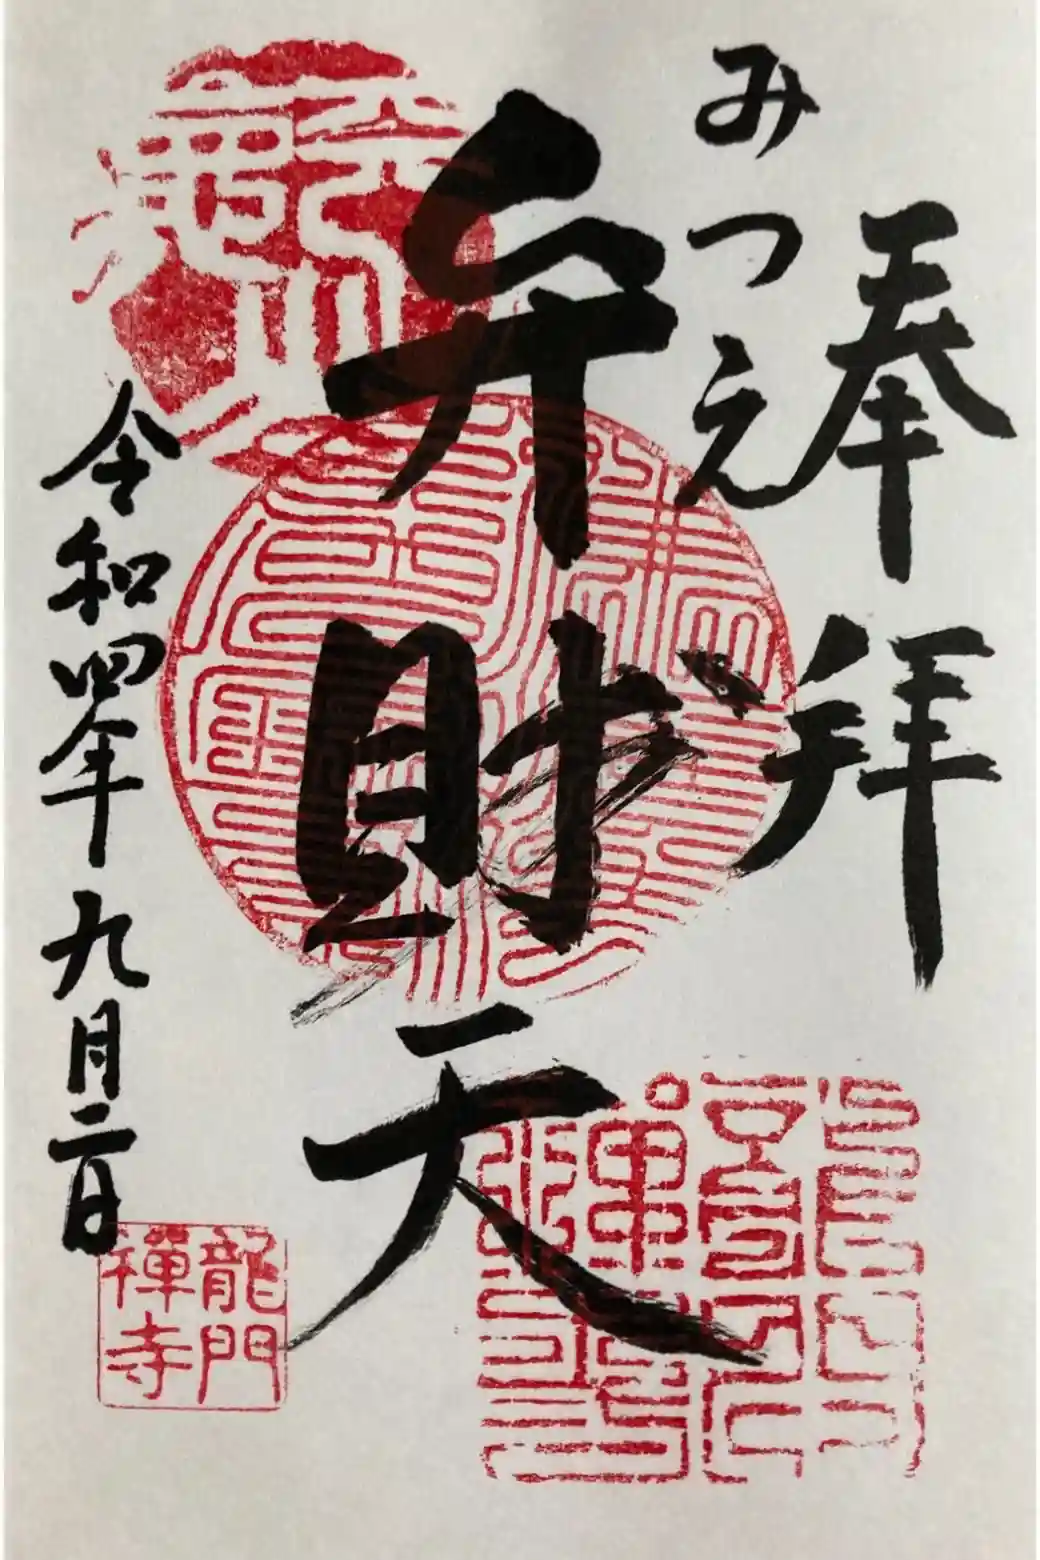 奉拝
みつえ
弁財天
令和四年九月二日
龍門
禅寺